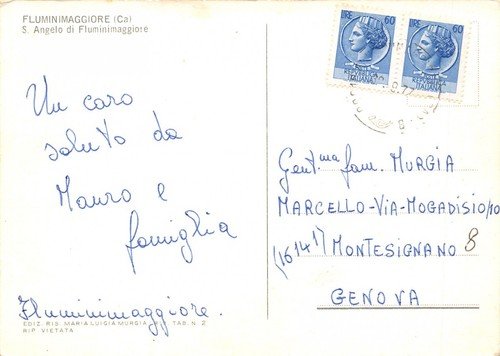 FLUMINIMAGGIORE (Ca)
S. Angelo di Fluminimaggiore
LIRE 60
LIRE 60
REPUBBLICA
ITALIANA
REPUBBLICA
ITALIANA
Un caro
saluto da
Mauro e
famiglia
Fluminimaggiore.
EDIZ. RIS. MARIA LUIGIA MURGIA TAB. N. 2
RIP. VIETATA
Gent.ma fam. MURGIA
MARCELLO-VIA-MOGADISIO/
(16141) MONTESIGNANO 8
GENOVA